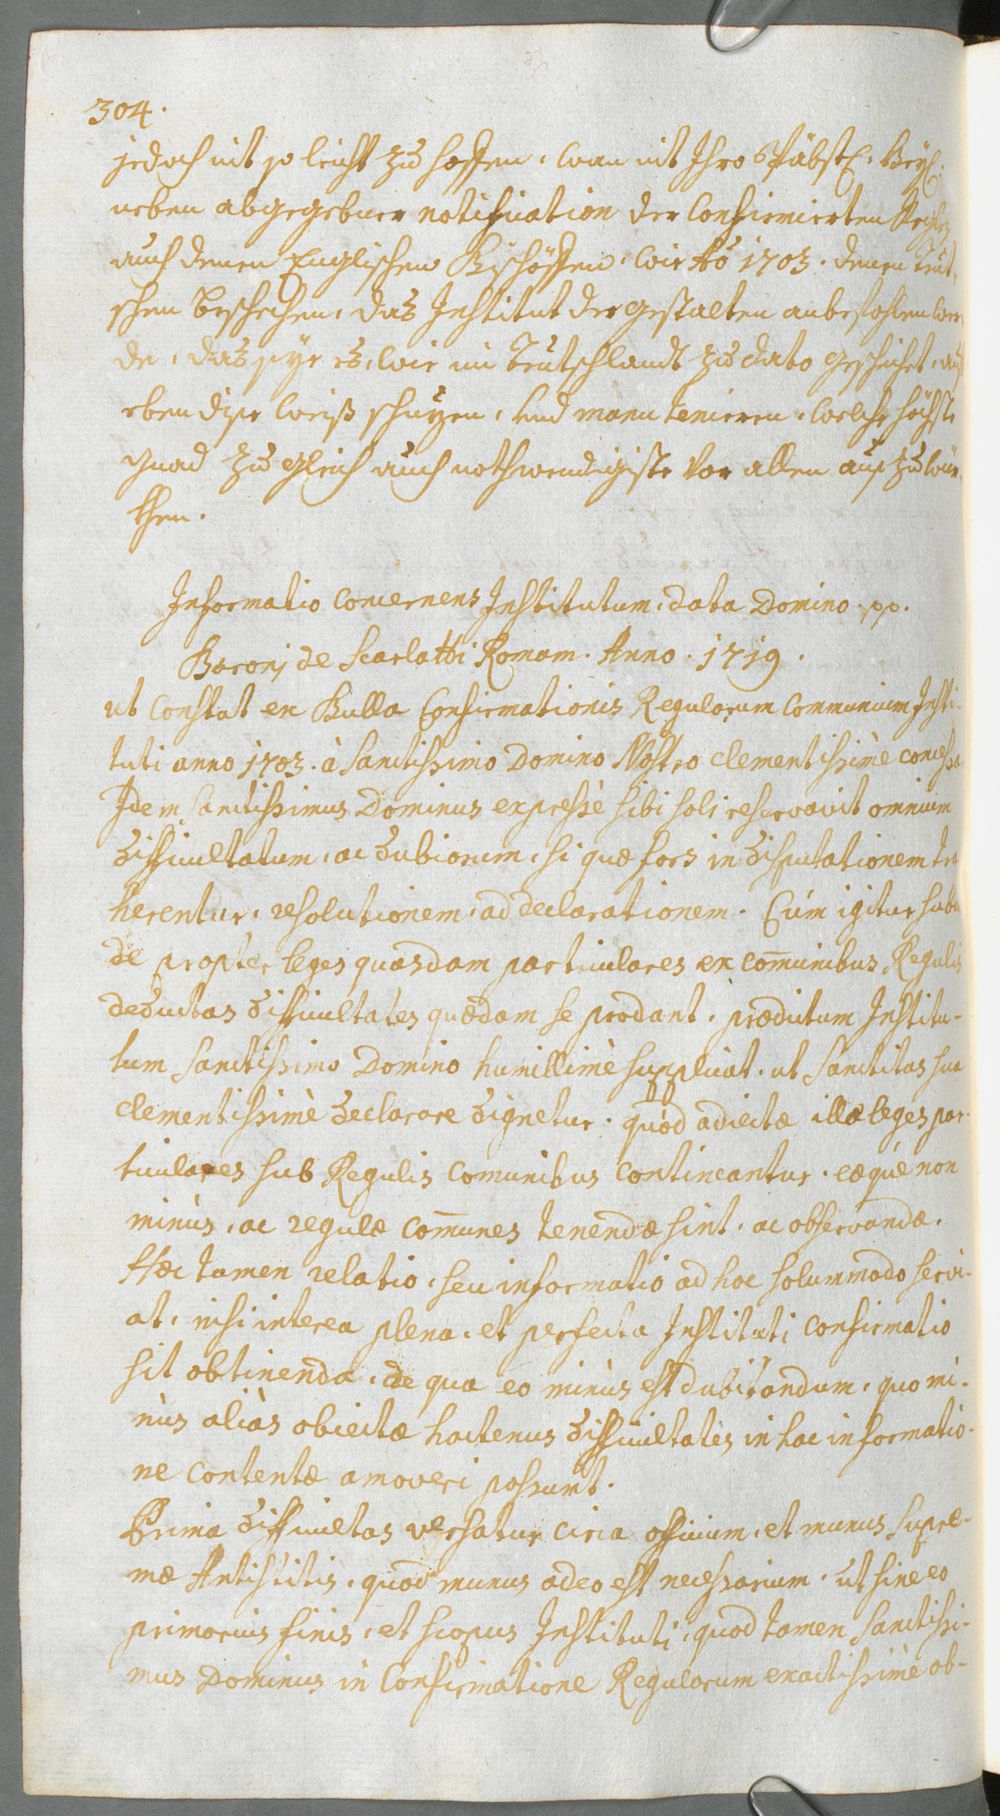 304.
jedoch nit so leicht zu hoffen, wan nit Ihro Päbstl: Heyl:
neben abgegebner notification der Confirmierten Reglen
auch denen Englischen Bischöffen, wie Ao 1703. denen Teut-
schen beschehen, das Institut der gestalten anbefohlen wer-
de, das sye es, wie in Teutschlandt zu dato geschicht, auf
eben dise weiß schuzen, und manutenieren, welche höchste
gnad zu gleich auch nothwendigiste vor allen auszuwür-
khen.
Informatio concernens Institutum, data Domino pp.
Baronj de Scarlatti Romam. Anno. 1719.
ut Constat ex Bulla Confirmationis Regularum communium Insti-
tuti anno 1703. à Sanctissimo Domino Nostro clementissimè concessa
Idem Sanctissimus Dominus expressè sibi soli reservavit omnium
difficultatum, ac dubiorum, si quæ fors in disputationem tra
herentur, resolutionem, ac declarationem. Cùm igitur subin
de propter leges quasdam particulares ex com̄unibus Regulis
deductas difficultates quædam se prodant, prædictum Institu-
tum Sanctissimo Domino humillimè supplicat, ut Sanctitas sua
clementissimè declarare dignetur, quòd adiectæ illæ leges par-
ticulares sub Regulis comunibus contineantur, eæque non
minùs, ac regulæ com̄unes tenendæ sint, ac observandæ.
Hæc tamen relatio, seu informatio ad hoc solummodo servi-
at, nisi interea plena, et perfecta Instituti confirmatio
sit obtinenda, de qua eo minùs est dubitandum, quo mi-
nùs aliàs obiectæ hactenus difficultates in hac informatio-
ne contentæ amoveri possunt.
Prima difficultas versatur circa officium, et munus supre-
mæ Antistitis, quod munus adeo est necessarium, ut sine eo
primarius finis, et scopus Instituti, quod tamen Sanctissi-
mus Dominus in Confirmatione Regularum exactissimè ob-